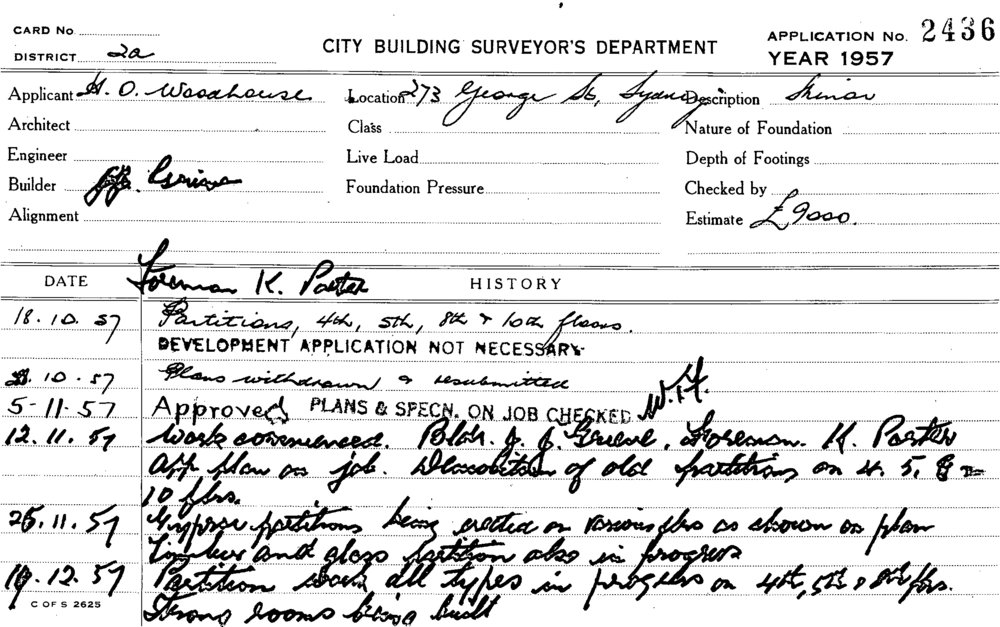 CARD No.
DISTRICT 2a
CITY BUILDING SURVEYOR'S DEPARTMENT
APPLICATION No. 2436
YEAR 1957
Applicant H. O. Woodhouse Location 273 George St, Sydney Description Minor
Architect Class Nature of Foundation
Engineer Live Load Depth of Footings
Builder Foundation Pressure Checked by
Alignment Estimate £9000.
DATE Foreman K. Porter HISTORY
18.10.57 Partitions, 4th, 5th, 8th & 10th floors.
DEVELOPMENT APPLICATION NOT NECESSARY
.10.57 Plans withdrawn & resubmitted
5-11-57 Approved PLANS & SPECN. ON JOB CHECKED
12.11.57 Work commenced. Bldr. J. J. Foreman. K. Porter
App plan on job. Demolition of old partitions on 4. 5. 8
10 flrs.
25.11.57 Gyproc partitions being erected on various flrs as shown on plan
Timber and glass partition also in progress
.12.57 Partition work all types in progress on 4th, 5th & 8th flrs.
Strong rooms being built
C OF S 2625